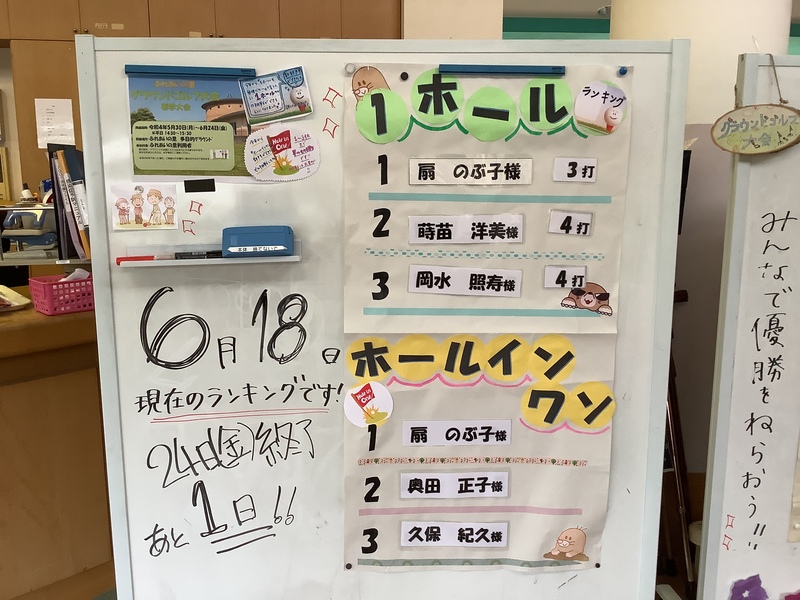 グラウンドゴルフ大会
令和4年5月30日(月)~6月24日(金)
Hole in One
1ホール
ランキング
1 扇 のぶ子様 3打
2 蒔苗 洋美様 4打
3 岡水 照寿様 4打
ホールイン
ワン
Hole in One
1 扇 のぶ子様
2 奥田 正子様
3 久保 紀久様
6月18日
現在のランキングです!
24日(金)終了
あと1日!!
グラウンドゴルフ
大会
みんなで優勝をねらおう!!